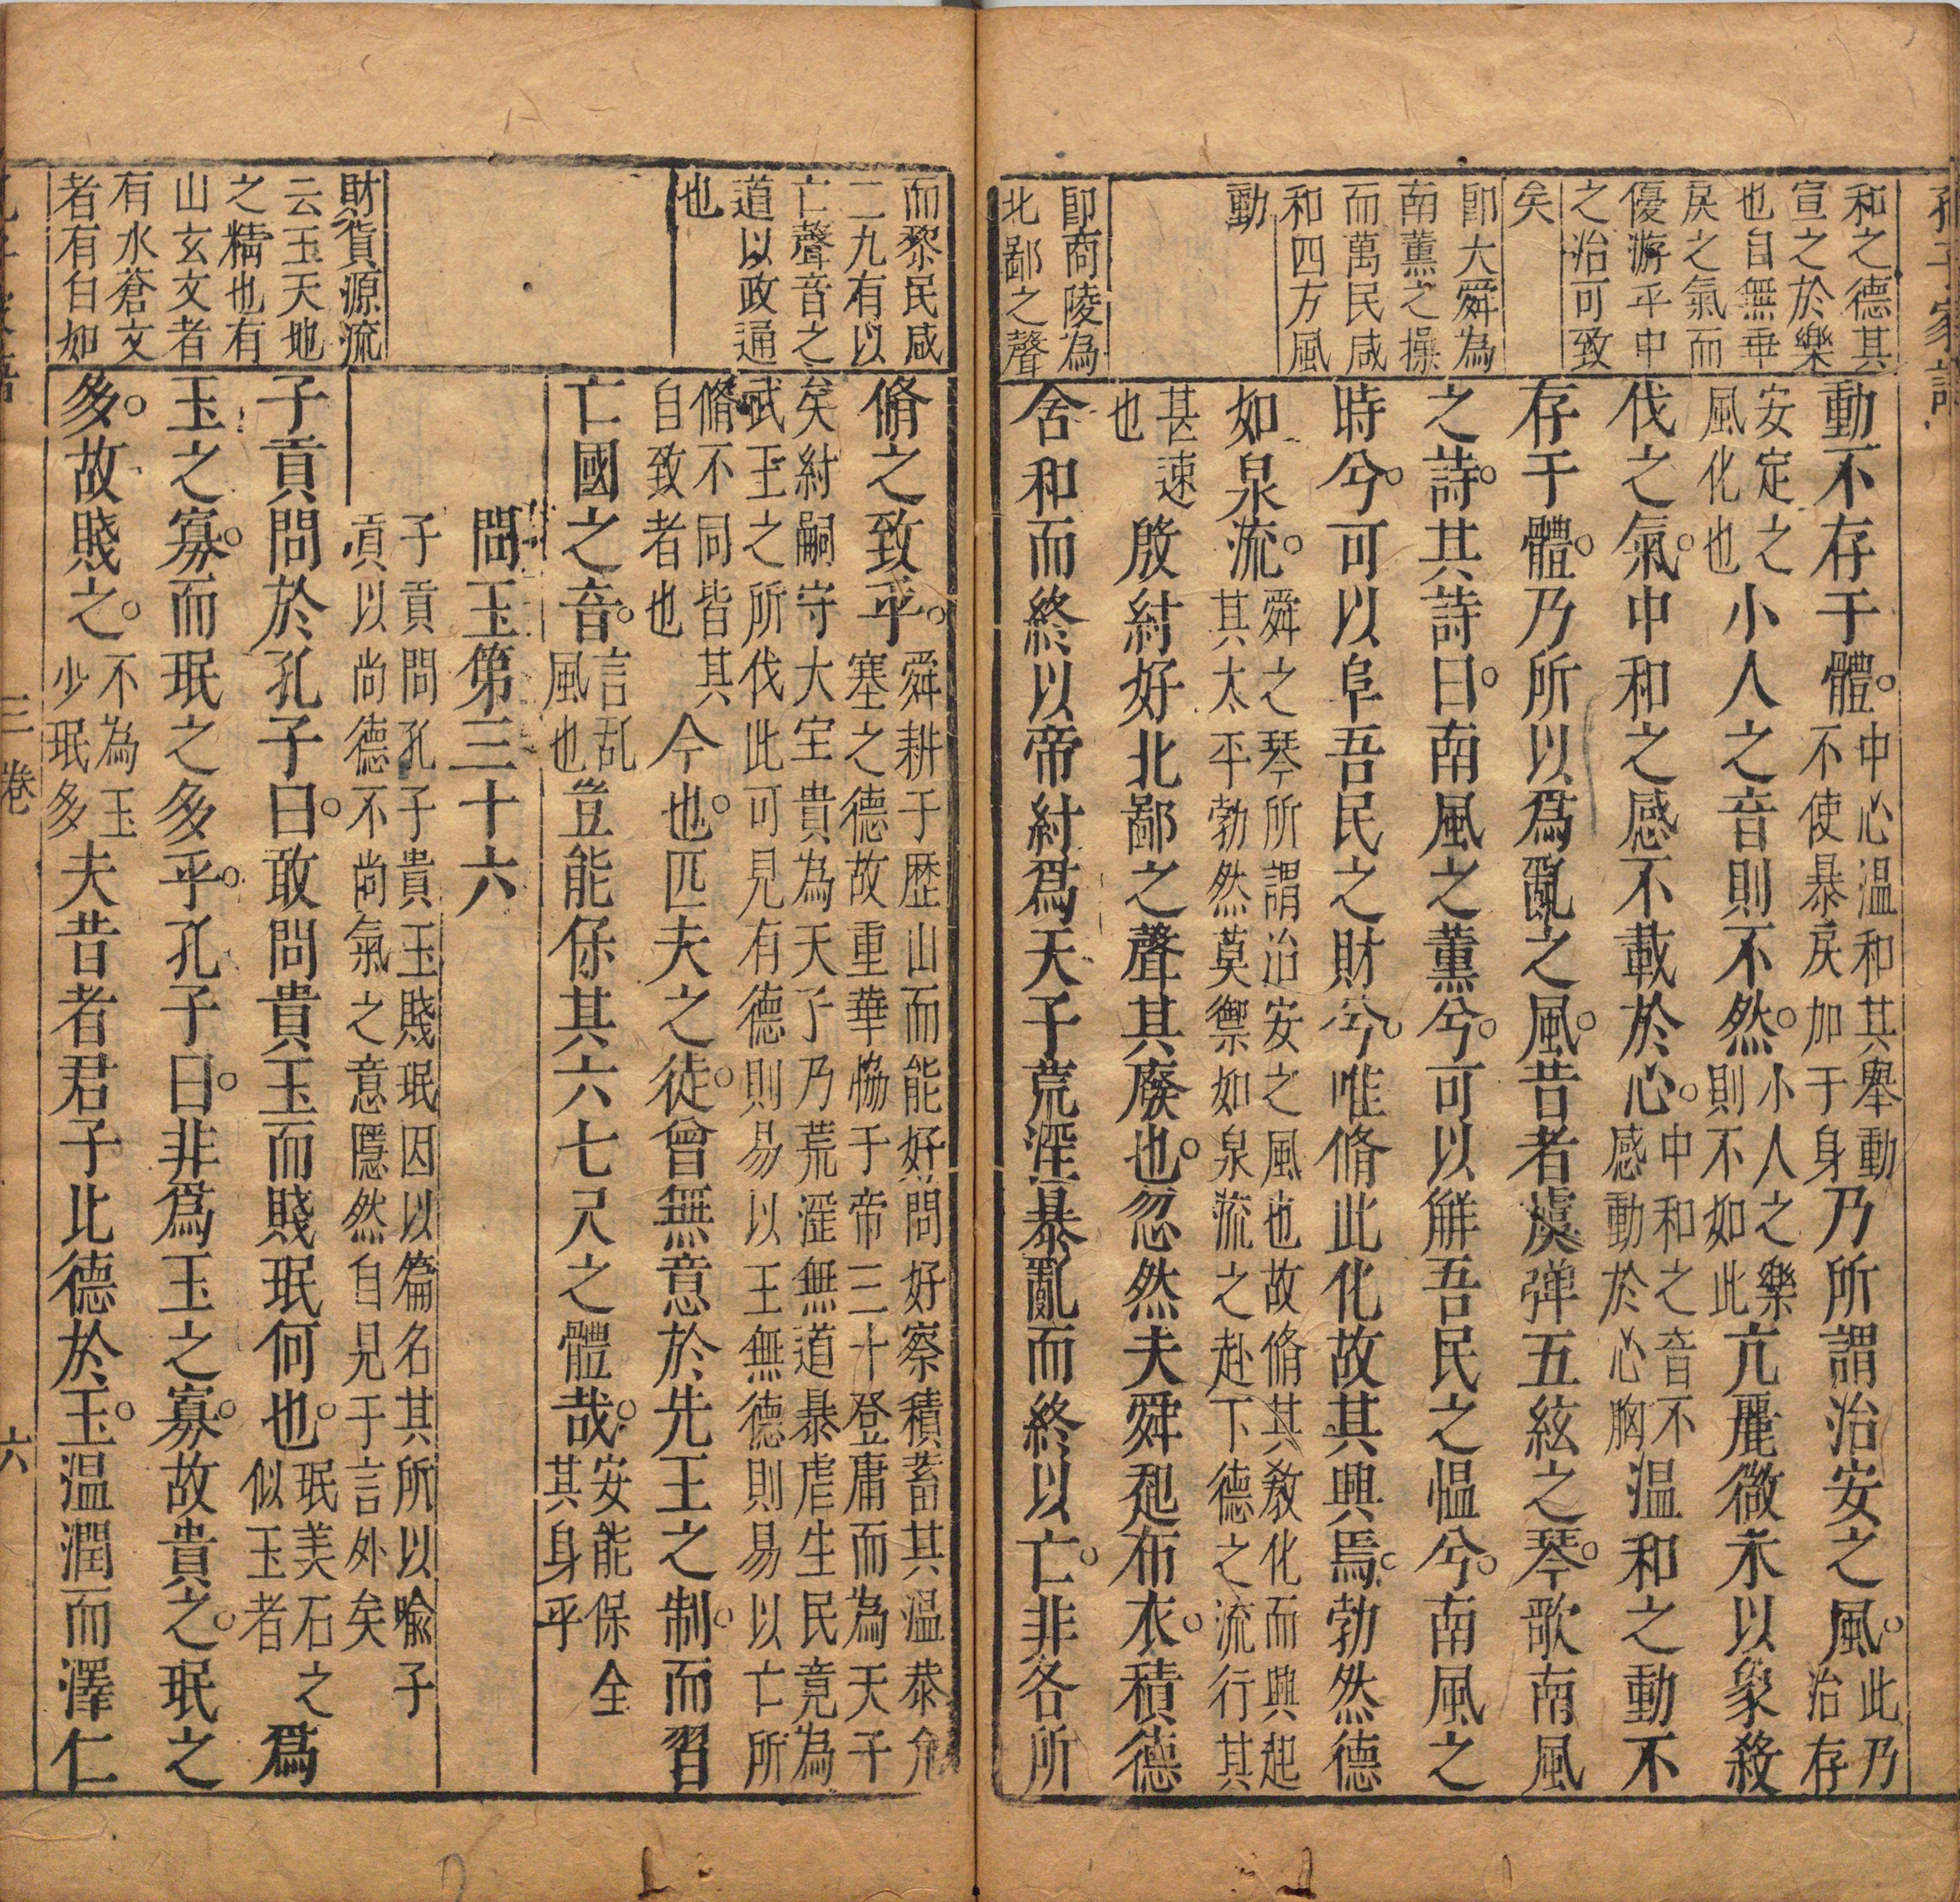 孔子家語
和之德其
宣之於樂
也自無乖
戾之氣而
優游乎中
之治可致
矣
即大舜為
南薰之操
而萬民咸
和四方風
動
即商陵為
北鄙之聲
動不存于體。中心温和其舉動不使暴戾加于身乃所謂治安之風。此乃治存
安定之風化也小人之音則不然。小人之樂則不如此亢麗微末以象殺
伐之氣。中和之感不載於心。中和之音不感動於心胸温和之動不
存于體。乃所以爲亂之風。昔者虞弹五絃之琴。歌南風
之詩。其詩曰。南風之薰兮。可以觧吾民之愠兮。南風之
時兮。可以阜吾民之財兮。唯脩此化故其興焉。勃然德
如泉流。舜之琴所謂治安之風也故脩其教化而興起其太平勃然莫禦如泉流之赴下德之流行其
甚速也殷紂好北鄙之聲其廢也。忽然夫舜起布衣。積德
含和而終以帝紂爲天子荒淫暴亂而終以亡。非各所
而黎民咸
二九有以
亡聲音之
道以政通
也
財貨源流
云玉天地
之精也有
山玄文者
有水蒼文
者有白如
脩之致乎。舜耕于歷山而能好問好察積蓄其温恭允塞之德故重華恊于帝三十登庸而為天子
矣紂嗣守大宝貴為天子乃荒淫無道暴虐生民竟為武王之所伐此可見有德則易以王無德則易以亡所
脩不同皆其自致者也今也。匹夫之徒。曾無意於先王之制。而習
亡國之音。言乱風也豈能保其六七尺之體哉。安能保全其身乎
問玉第三十六
子貢問孔子貴玉賤珉因以篇名其所以喻子貢以尚德不尚氣之意隱然自見于言外矣
子貢問於孔子曰。敢問貴玉而賤珉何也。珉美石之似玉者爲
玉之寡。而珉之多乎。孔子曰。非爲玉之寡。故貴之。珉之
多。故賤之。不為玉少珉多夫昔者君子比德於玉。温潤而澤仁
三卷
六